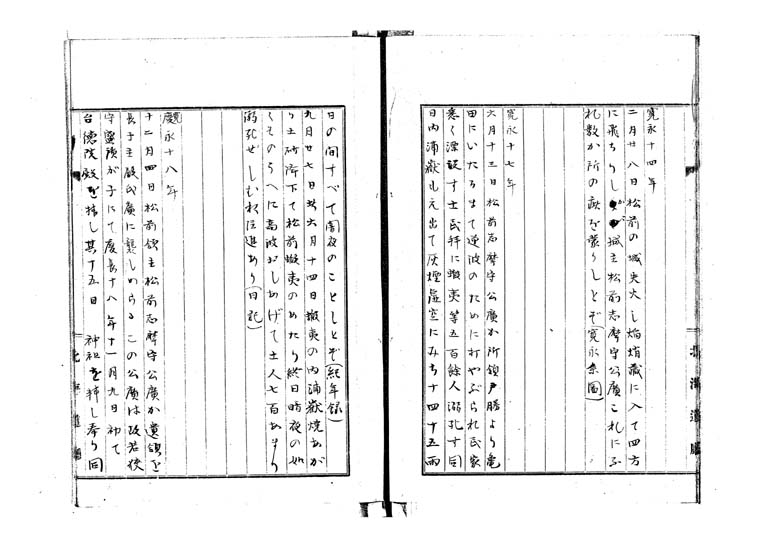 寛永十四年
二月廿八日松前の城失火し焔焇蔵に入て四方
に飛ちりし 城主松前志摩守公廣これにふ
れ数か所の疵を蒙りしとぞ(寛永系圖)
寛永十七年
六月十三日松前志摩守公廣か所領戸勝より亀
田にいたるまて逆波のために打やぶられ民家
悉く漂没す士民幷に蝦夷等五百餘人溺死す同
日内浦嶽も元出て灰煙虚空にみち十四十五両
日の間すべて闇夜のことしとぞ(紀年録)
九月廿七日去六月十四日蝦夷の内浦嶽焼あが
り土砂降下て松前蝦夷のわたり終日暗夜の如
くそのうへに高波おしあげて土人七百あまり
溺死せしむね注進あり(日記)
寛永十八年
十二月四日松前領主松前志摩守公廣か遺領を
長子主殿氏廣に襲しめらるこの公廣は故若狭
守盛廣が子にて慶長十八年十一月九日初て
台徳院殿を拝し其十五日 神祖を拝し奉り同
北海道廳